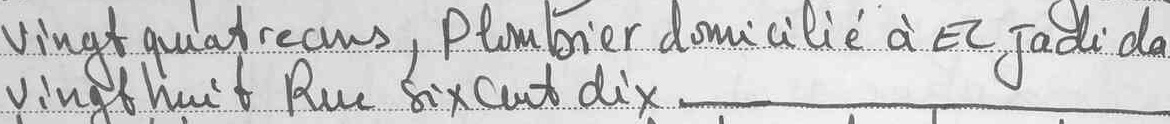 vingt quatre ans, Plombier domicilié à El Jadida
vingt huit Rue six cent dix.